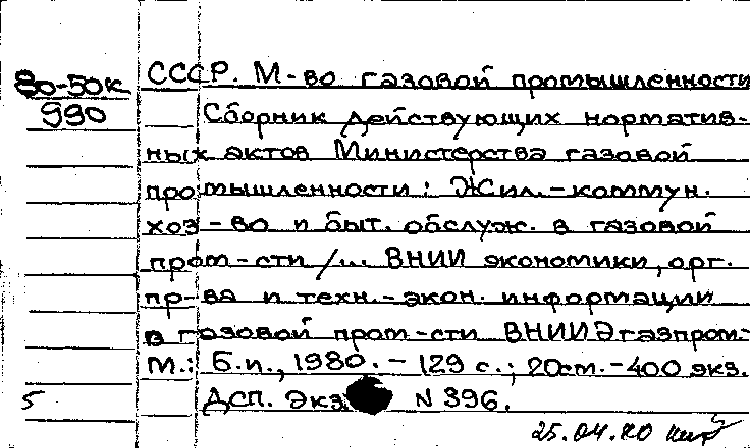 80-50к
990
СССР. М-во газовой промышленности
Сборник действующих норматив-
ных актов Министерства газовой
промышленности: Жил.-коммун.
хоз-во и быт. обслуж. в газовой
пром-сти /... ВНИИ экономики, орг.
пр-ва и техн.-экон. информации
в газовой пром-сти ВНИИЭгазпром.-
М.: Б.и., 1980. - 129 с.; 20см. - 400 экз.
5.
ДСП. Экз N 396.
25.04.80